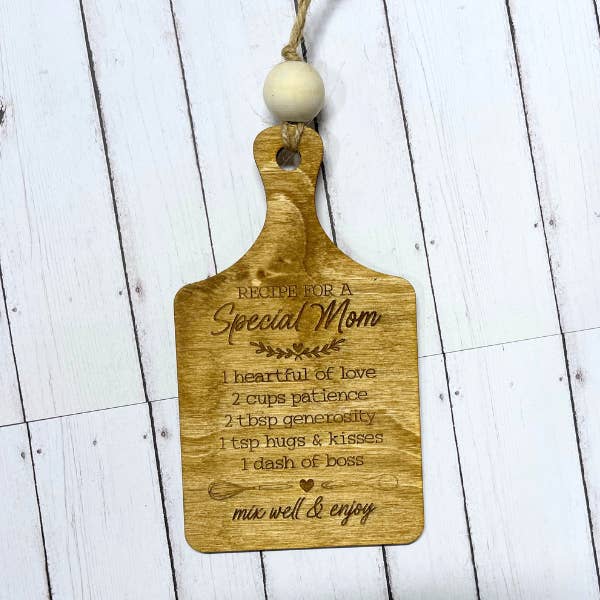 RECIPE FOR A
Special Mom
1 heartful of love
2 cups patience
2 tbsp generosity
1 tsp hugs & kisses
1 dash of boss
mix well & enjoy